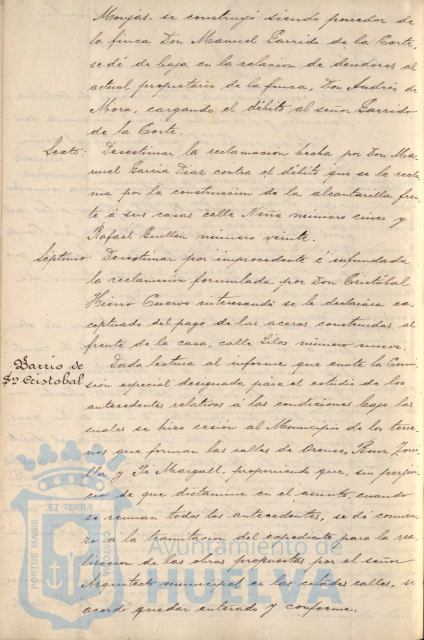 Monjas se construyó siendo poseedor de
la finca Don Manuel Garrido de la Corte,
se dé de baja en la relacion de deudores al
actual propietario de la finca, Don Andrés de
Mora, cargando el débito al señor Garrido
de la Corte.
Sexto: Desestimar la reclamación hecha por Don Ma-
nuel Garcia Diaz contra el débito que se le recla-
ma por la construcción de la alcantarilla fren-
te á sus casas calle Niña número cinco y
Rafael Guillen número veinte.
Séptimo: Desestimar por improcedente é infundada
la reclamación formulada por Don Cristóbal
Hierro Cuervo interesando se le declarára ex-
ceptuado del pago de las aceras construidas al
frente de la casa, calle Silos número nueve.
Barrio de
Sn Cristobal
Dada lectura al informe que emite la Comi-
sión especial designada para el estudio de los
antecedentes relativos á las condiciones bajo las
cuales se hizo cesión al Municipio de los terre-
nos que forman las calles de Orense, Ruiz Zorri-
lla y Pi Margall, proponiendo que, sin perjui-
cio de que dictamine en el asunto cuando
se reunan todos los antecedentes, se dé comien-
zo á la tramitación del expediente para la rea-
lización de las obras propuestas por el señor
Arquitecto municipal en las citadas calles, se
acordó quedar enterado y conforme.
PORTUS MARIS ET TERRÆ CUSTODIA
Ayuntamiento de
HUELVA